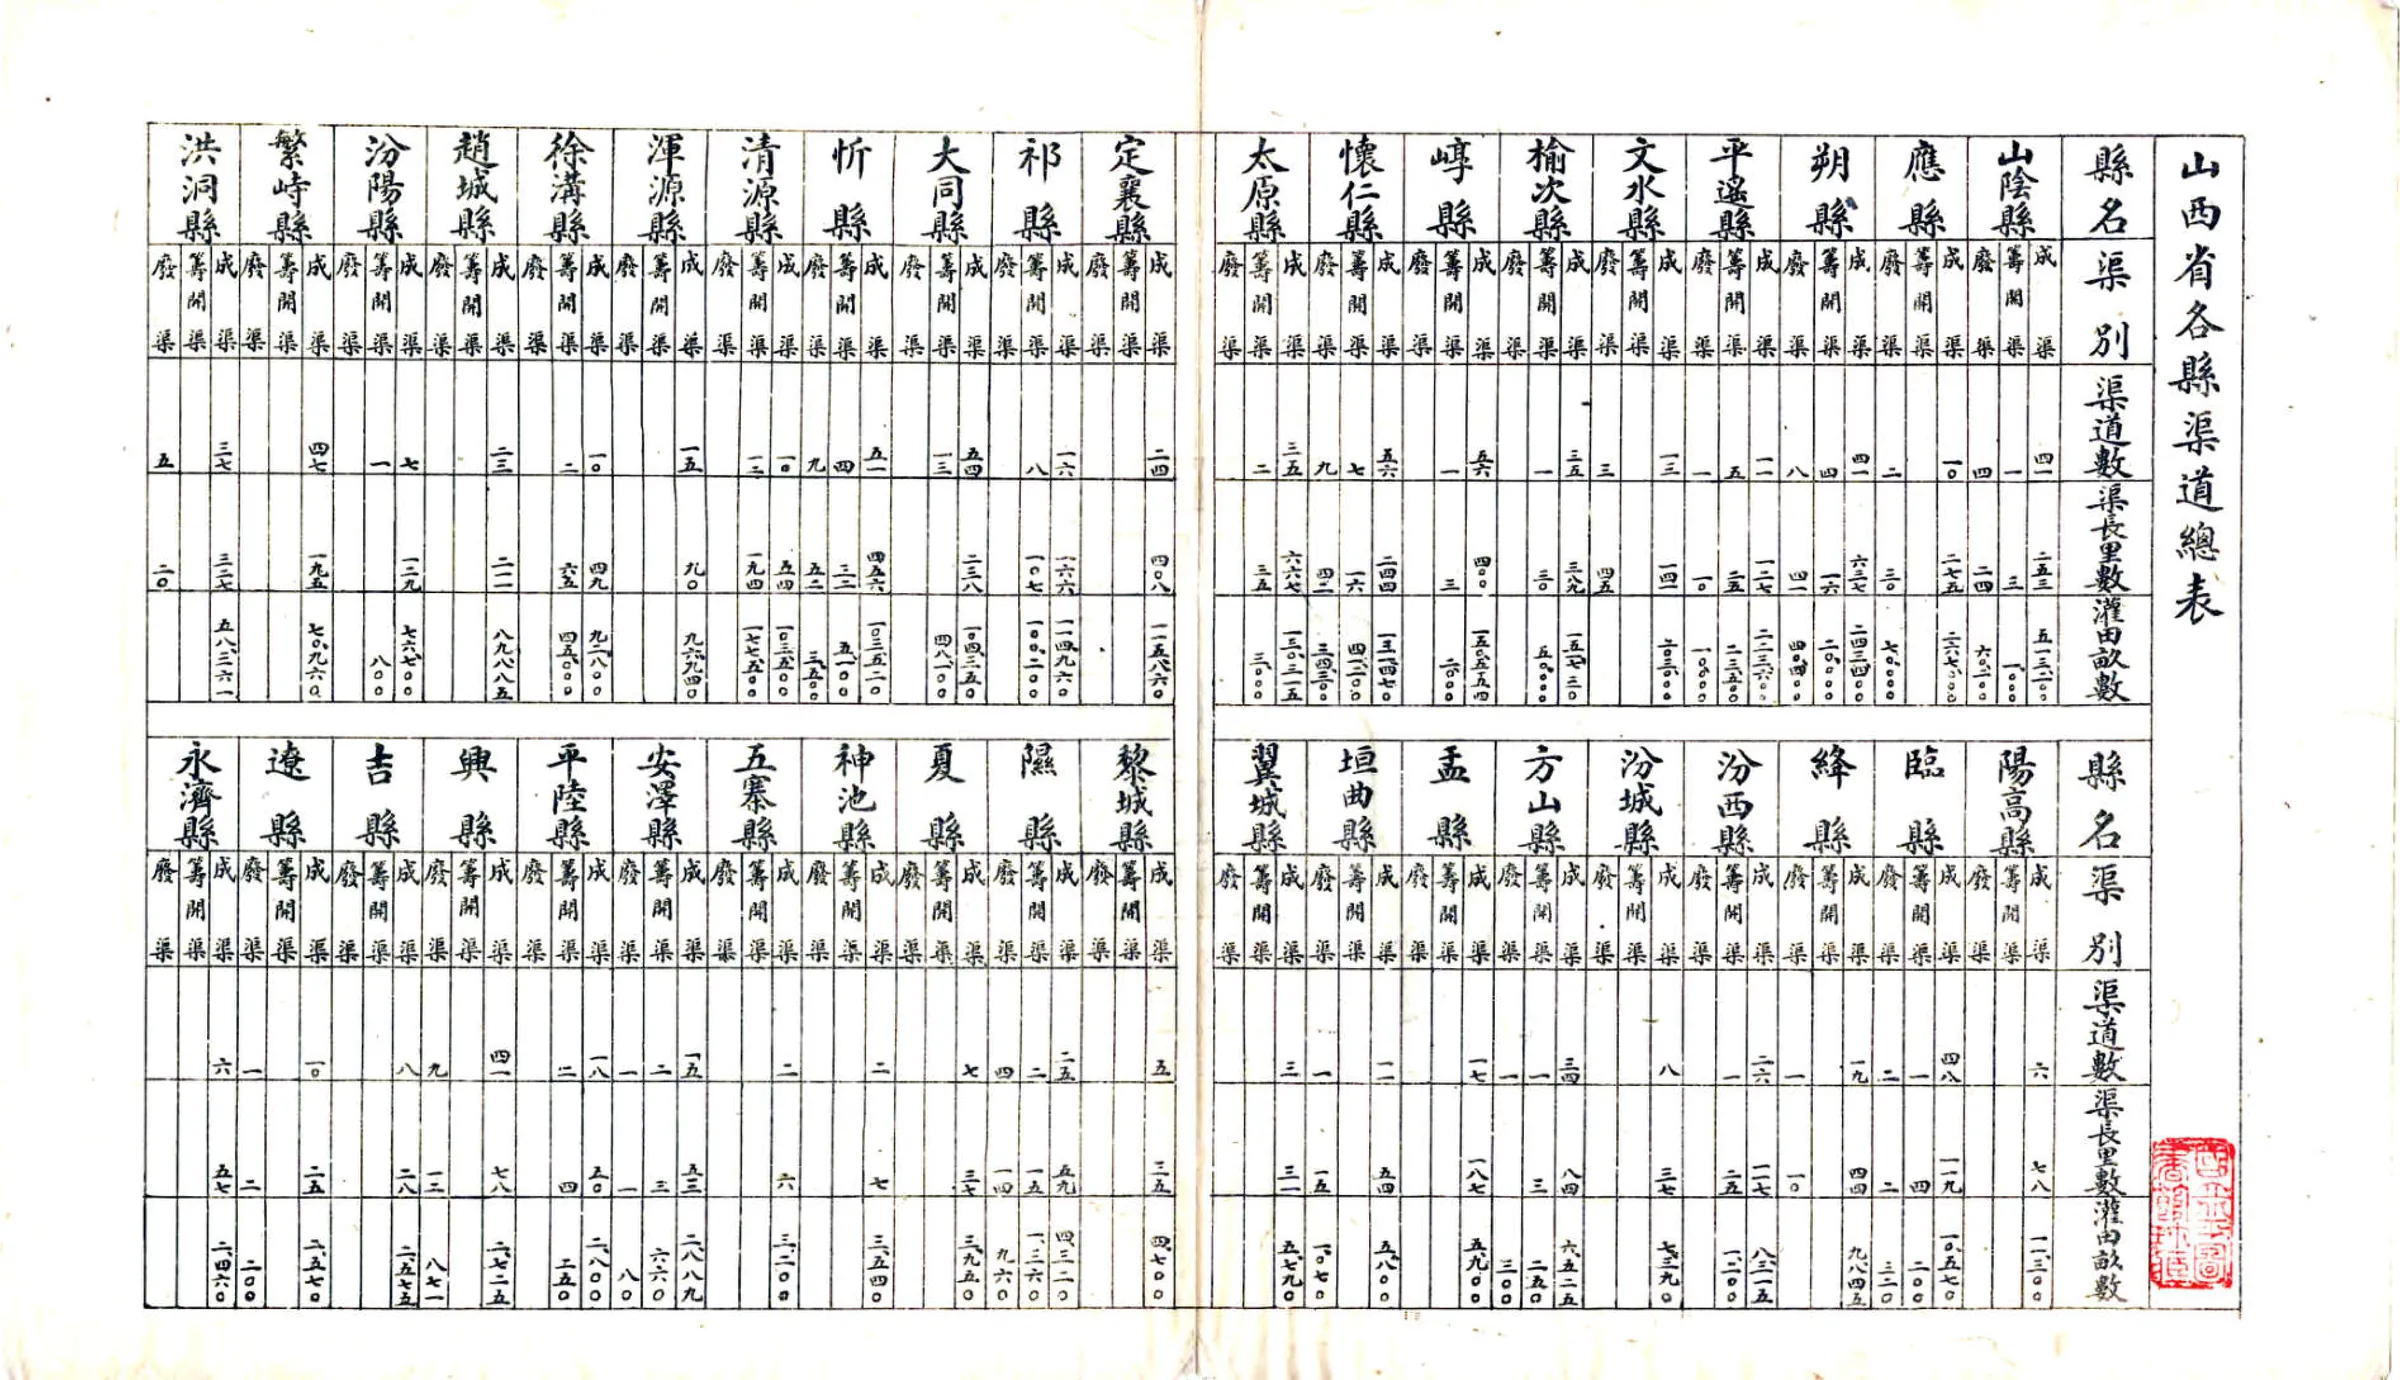 山西省各縣渠道總表
縣名 渠別 渠道數 渠長里數 灌田畝數
山陰縣
成渠 四一 二五三
籌開渠 一 三 一、〇〇〇
廢渠 四 二四
應縣
成渠 一〇 二七五
籌開渠
廢渠 二 三〇
朔縣
成渠 四一 六三七 二四三、四〇〇
籌開渠 四 一六 二〇、〇〇〇
廢渠 八 四一 四〇、四〇〇
平遙縣
成渠 一一 一二七
籌開渠 五 二五 二三、五〇〇
廢渠 一 一〇 一〇、〇〇〇
文水縣
成渠 一三 一四一
籌開渠
廢渠 三 四五
榆次縣
成渠 三五 三八九
籌開渠 一 三〇 五〇、〇〇〇
廢渠
崞縣
成渠 五六 四〇〇 一五〇、五五四
籌開渠 一 三 二、〇〇〇
廢渠
懷仁縣
成渠 五六 二四四 一三一、四七〇
籌開渠 七 一六
廢渠 九 四二 三四、三〇〇
太原縣
成渠 三五 六六七 一三〇、三一五
籌開渠 二 三五 三、〇〇〇
廢渠
定襄縣
成渠 二四 四〇八 一一五、八六〇
籌開渠
廢渠
祁縣
成渠 一六 一六六 一一四、九六〇
籌開渠 八 一〇七 一〇〇、二〇〇
廢渠
大同縣
成渠 五四 二三八 一〇四、三五〇
籌開渠 一三 四八、一〇〇
廢渠
忻縣
成渠 五一 四五六 一〇三、五二〇
籌開渠 四 三二 五、一〇〇
廢渠 九 五二 三、五〇〇
清源縣
成渠 一〇 五四 一〇三、五〇〇
籌開渠 一二 一九四 一七七、五〇〇
廢渠
渾源縣
成渠 一五 九〇 九六、九四〇
籌開渠
廢渠
徐溝縣
成渠 一〇 四九 九二、八〇〇
籌開渠 二 六五 四五、〇〇〇
廢渠
趙城縣
成渠 二三 二一一 八九、八八五
籌開渠
廢渠
汾陽縣
成渠 七 一二九 七六、七〇〇
籌開渠 一 八〇〇
廢渠
繁峙縣
成渠 四七 一九五 七〇、九六〇
籌開渠
廢渠
洪洞縣
成渠 三七 三二七 五八、三六一
籌開渠
廢渠 五 二〇
縣名 渠別 渠道數 渠長里數 灌田畝數
陽高縣
成渠 六 七八 一一、三〇〇
籌開渠
廢渠
臨縣
成渠 四八 一一九 一〇、五七〇
籌開渠 一 四 二〇〇
廢渠 二 二 三二〇
絳縣
成渠 一九 四四 九、八四五
籌開渠
廢渠 一 一〇
汾西縣
成渠 二六 一一七 八、三一五
籌開渠 一 二五 一、二〇〇
廢渠
汾城縣
成渠 八 三七 七、三九〇
籌開渠
廢渠
方山縣
成渠 三四 八四 六、五二五
籌開渠 一 三 二五〇
廢渠 一 三〇〇
盂縣
成渠 一七 一八七 五、九〇〇
籌開渠
廢渠
垣曲縣
成渠 一一 五四 五、八〇〇
籌開渠
廢渠 一 一五 一、〇七〇
翼城縣
成渠 三 三一 五、七九〇
籌開渠
廢渠
黎城縣
成渠 五 三五 四、七〇〇
籌開渠
廢渠
隰縣
成渠 二五 五九 四、三二〇
籌開渠 二 一五 一、三六〇
廢渠 四 一四 九六〇
夏縣
成渠 七 三七 三、九五〇
籌開渠
廢渠
神池縣
成渠 二 七 三、五四〇
籌開渠
廢渠
五寨縣
成渠 二 六 三、二〇〇
籌開渠
廢渠
安澤縣
成渠 一五 五三 二、八八九
籌開渠 二 三 六六〇
廢渠 一 一 八〇
平陸縣
成渠 一八 五〇 二、八〇〇
籌開渠 二 四 二五〇
廢渠
興縣
成渠 四一 七八 二、七二五
籌開渠
廢渠 九 一三 八七一
吉縣
成渠 八 二八 二、五七五
籌開渠
廢渠
遼縣
成渠 一〇 二五 二、五七〇
籌開渠
廢渠 一 二 二〇〇
永濟縣
成渠 六 五七 二、四六〇
籌開渠
廢渠